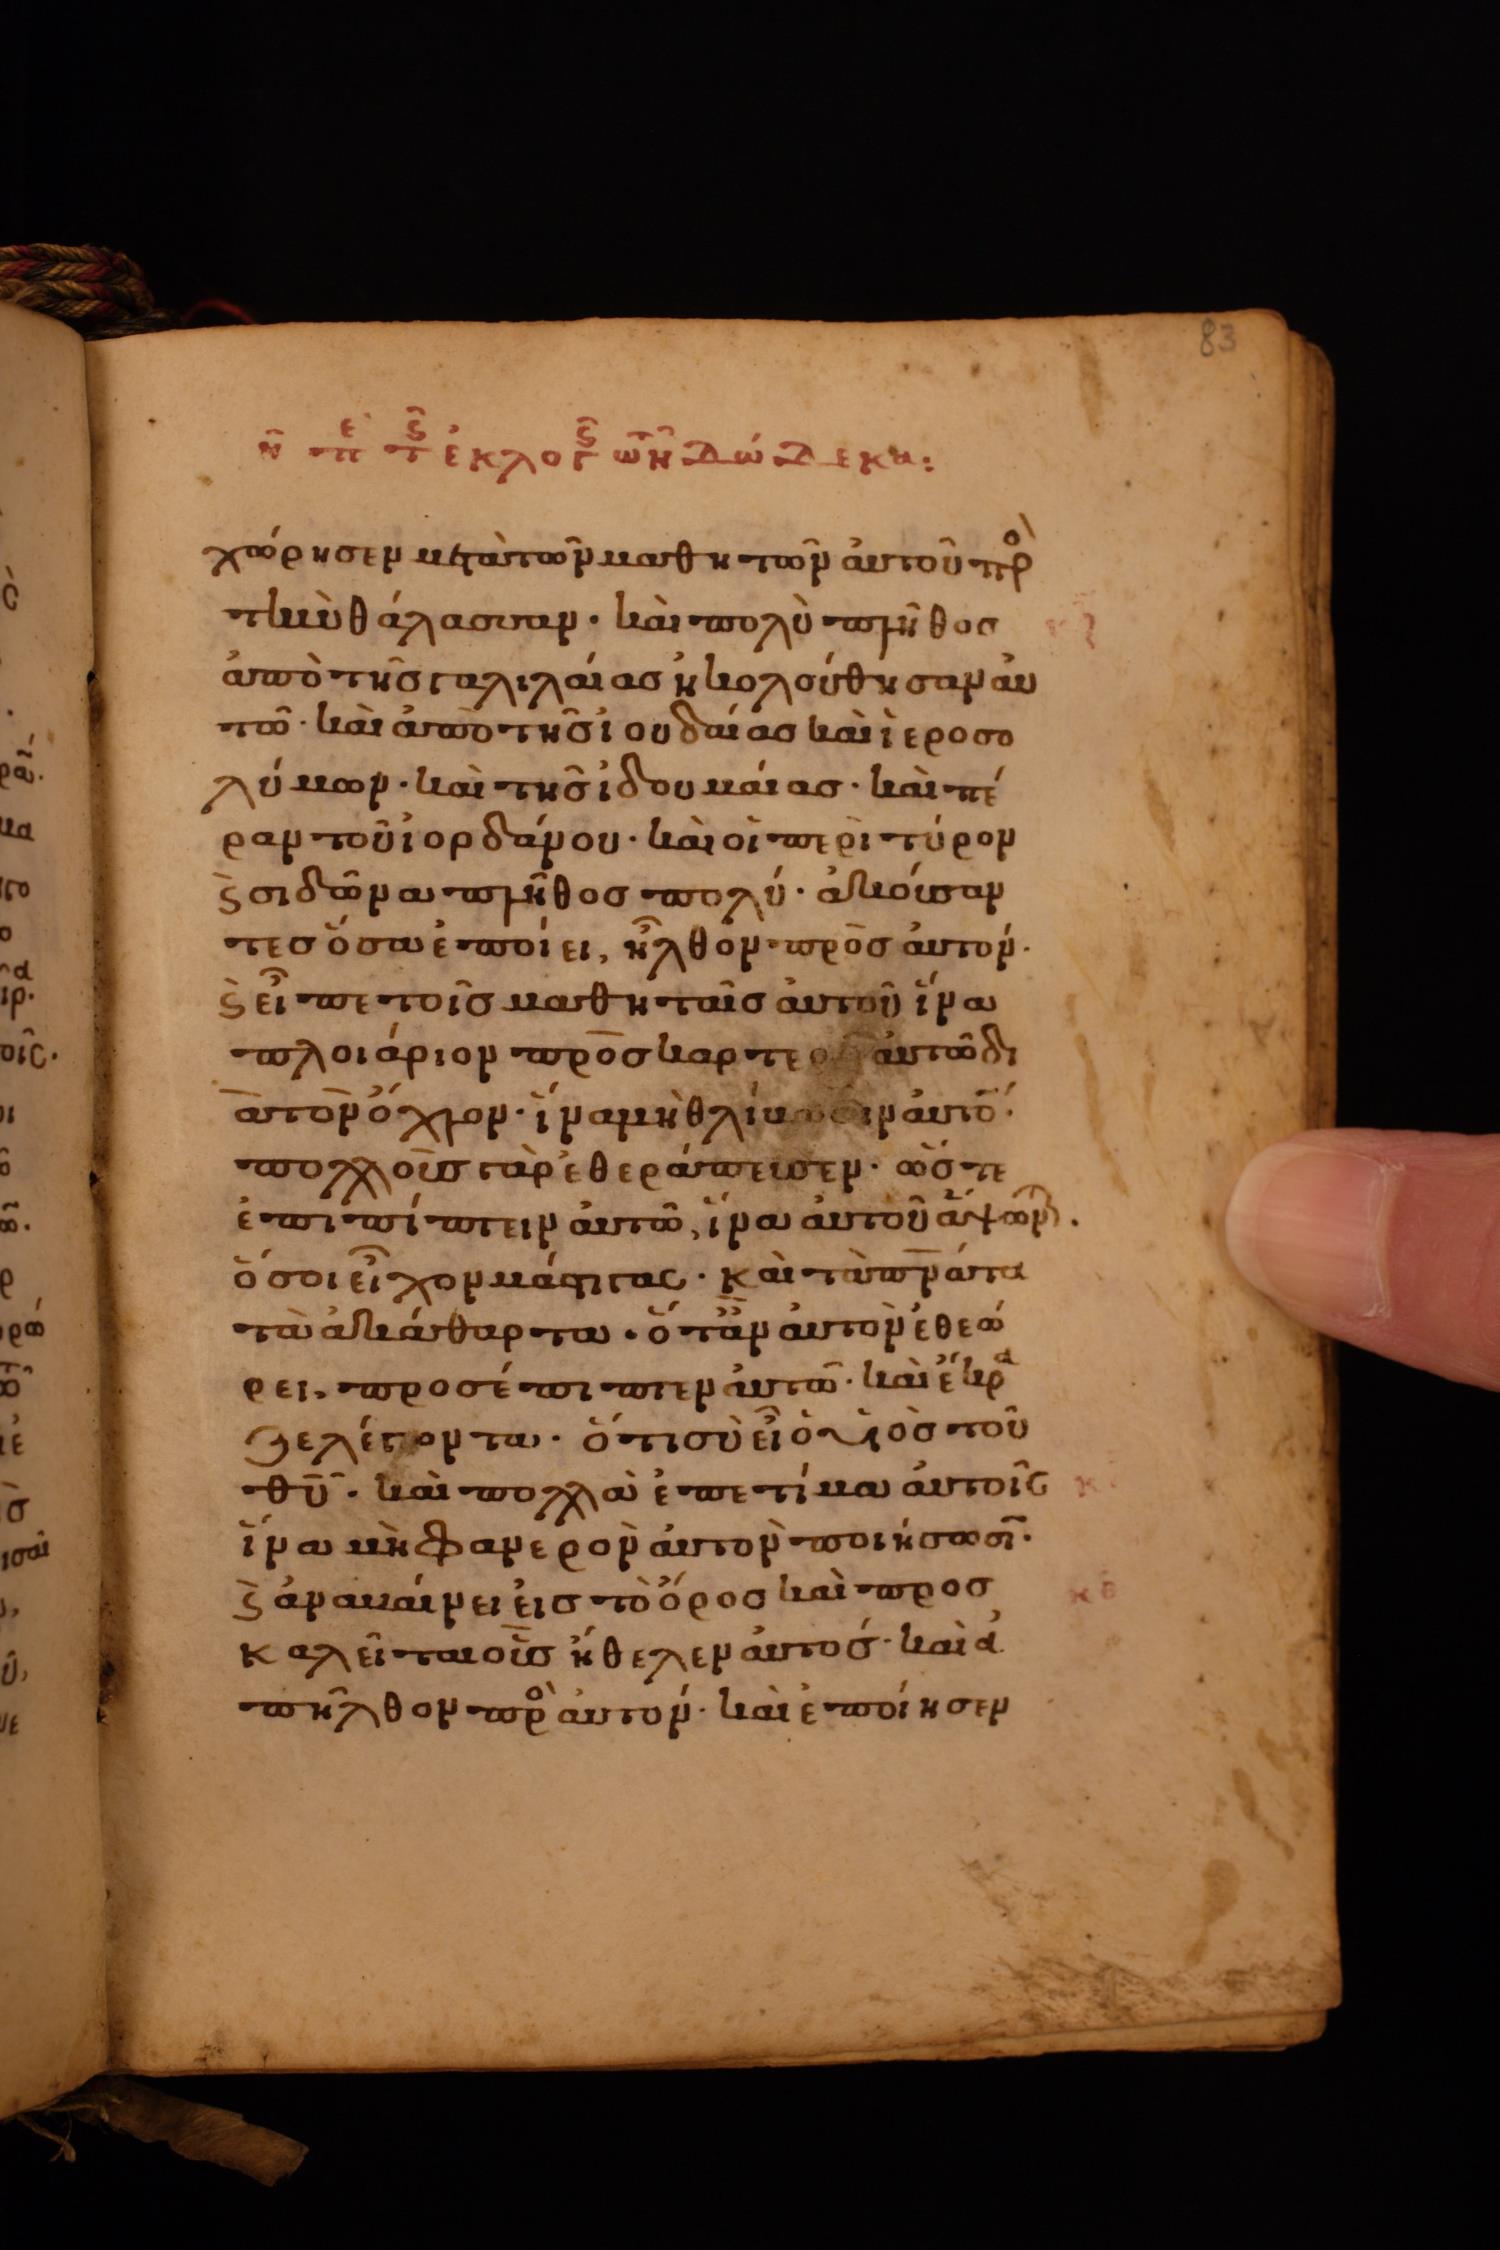 83
η πε τ ἐκλογ τῶν δώδεκα:
χώρησεν μετὰ τῶν μαθητῶν ἀυτοῦ πρὸ
τὴν θάλασσαν· καὶ πολὺ πλῆθος
ἀπὸ τῆς γαλιλαίας ἠκολούθησαν ἀυ
τῶ· καὶ ἀπὸ τῆς ἰουδαίας καὶ ἱεροσο
λύμων· καὶ τῆς ἰδουμαίας· καὶ πέ
ραν τοῦ ἰορδάνου· καὶ οἱ περὶ τύρον
ϗ σιδῶνα πλῆθος πολύ· ἀκούσαν
τες ὅσα ἐποίει, ἦλθον πρὸς ἀυτόν·
ϗ εἶπε τοῖς μαθηταῖς ἀυτοῦ ἵνα
πλοιάριον προσκαρτε ἀυτῶ δι
ὰ τὸν ὄχλον· ἵνα μὴ θλίβωσιν ἀυτό·
πολλοὺς γὰρ ἐθεράπευσεν· ὥστε
ἐπιπίπτειν ἀυτῶ, ἵνα ἀυτοῦ ἅψων·
ὅσοι εἶχον μάστιγας· καὶ τὰ πνάτα
τὰ ἀκάθαρτα· ὅταν ἀυτὸν ἐθεώ
ρει, προσέπιπτεν ἀυτῶ· καὶ ἔκρα
ζε λέγοντα· ὅτι σὺ εἶ ὁ υἱὸς τοῦ
θῦ· καὶ πολλὰ ἐπετίμα ἀυτοῖς
ἵνα μὴ φανερὸν ἀυτὸν ποιήσωσι·
ϗ ἀναβαίνει εἰς τὸ ὄρος καὶ προσ
καλεῖται οὓς ἤθελεν ἀυτός· καὶ ἀ
πῆλθον πρὸ ἀυτόν· καὶ ἐποίησεν